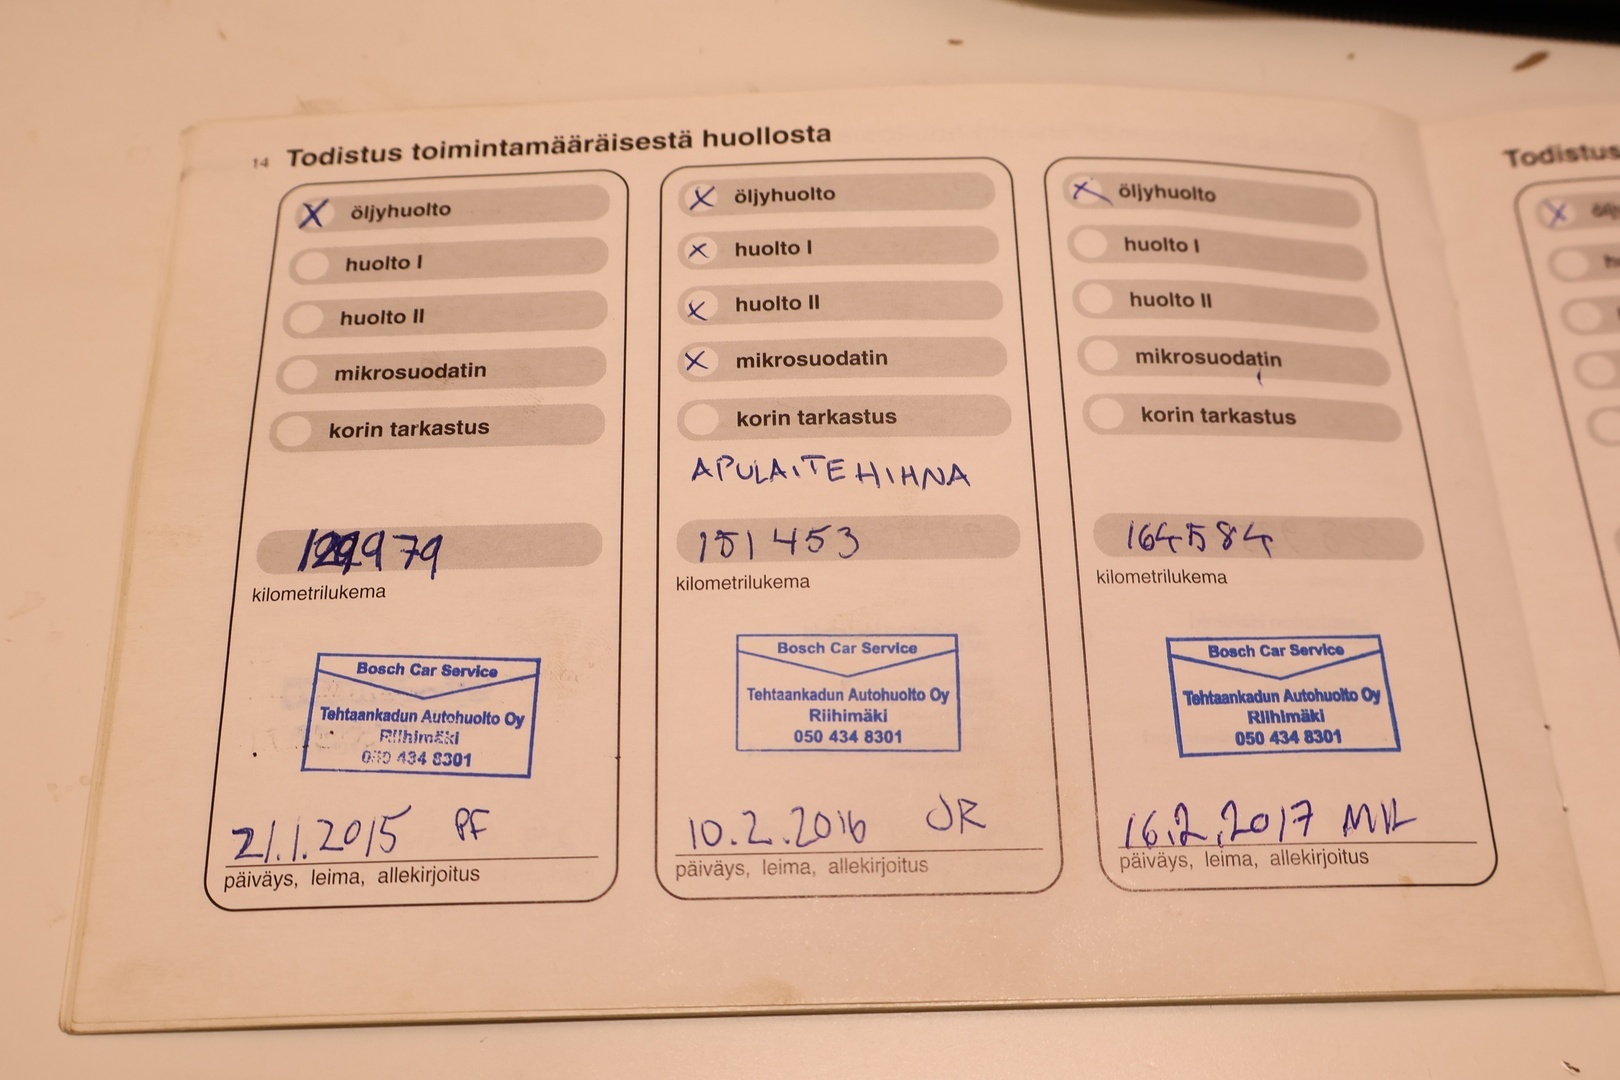 14 Todistus toimintamääräisestä huollosta
X öljyhuolto
huolto I
huolto II
mikrosuodatin
korin tarkastus
kilometrilukema
Bosch Car Service
Tehtaankadun Autohuolto Oy
Riihimäki
050 434 8301
21.1.2015 PF
päiväys, leima, allekirjoitus
X öljyhuolto
X huolto I
X huolto II
X mikrosuodatin
korin tarkastus
APULAITEHIHNA
151 453
kilometrilukema
Bosch Car Service
Tehtaankadun Autohuolto Oy
Riihimäki
050 434 8301
10.2.2016 JR
päiväys, leima, allekirjoitus
X öljyhuolto
huolto I
huolto II
mikrosuodatin
korin tarkastus
164584
kilometrilukema
Bosch Car Service
Tehtaankadun Autohuolto Oy
Riihimäki
050 434 8301
16.2.2017
päiväys, leima, allekirjoitus
Todistus
X